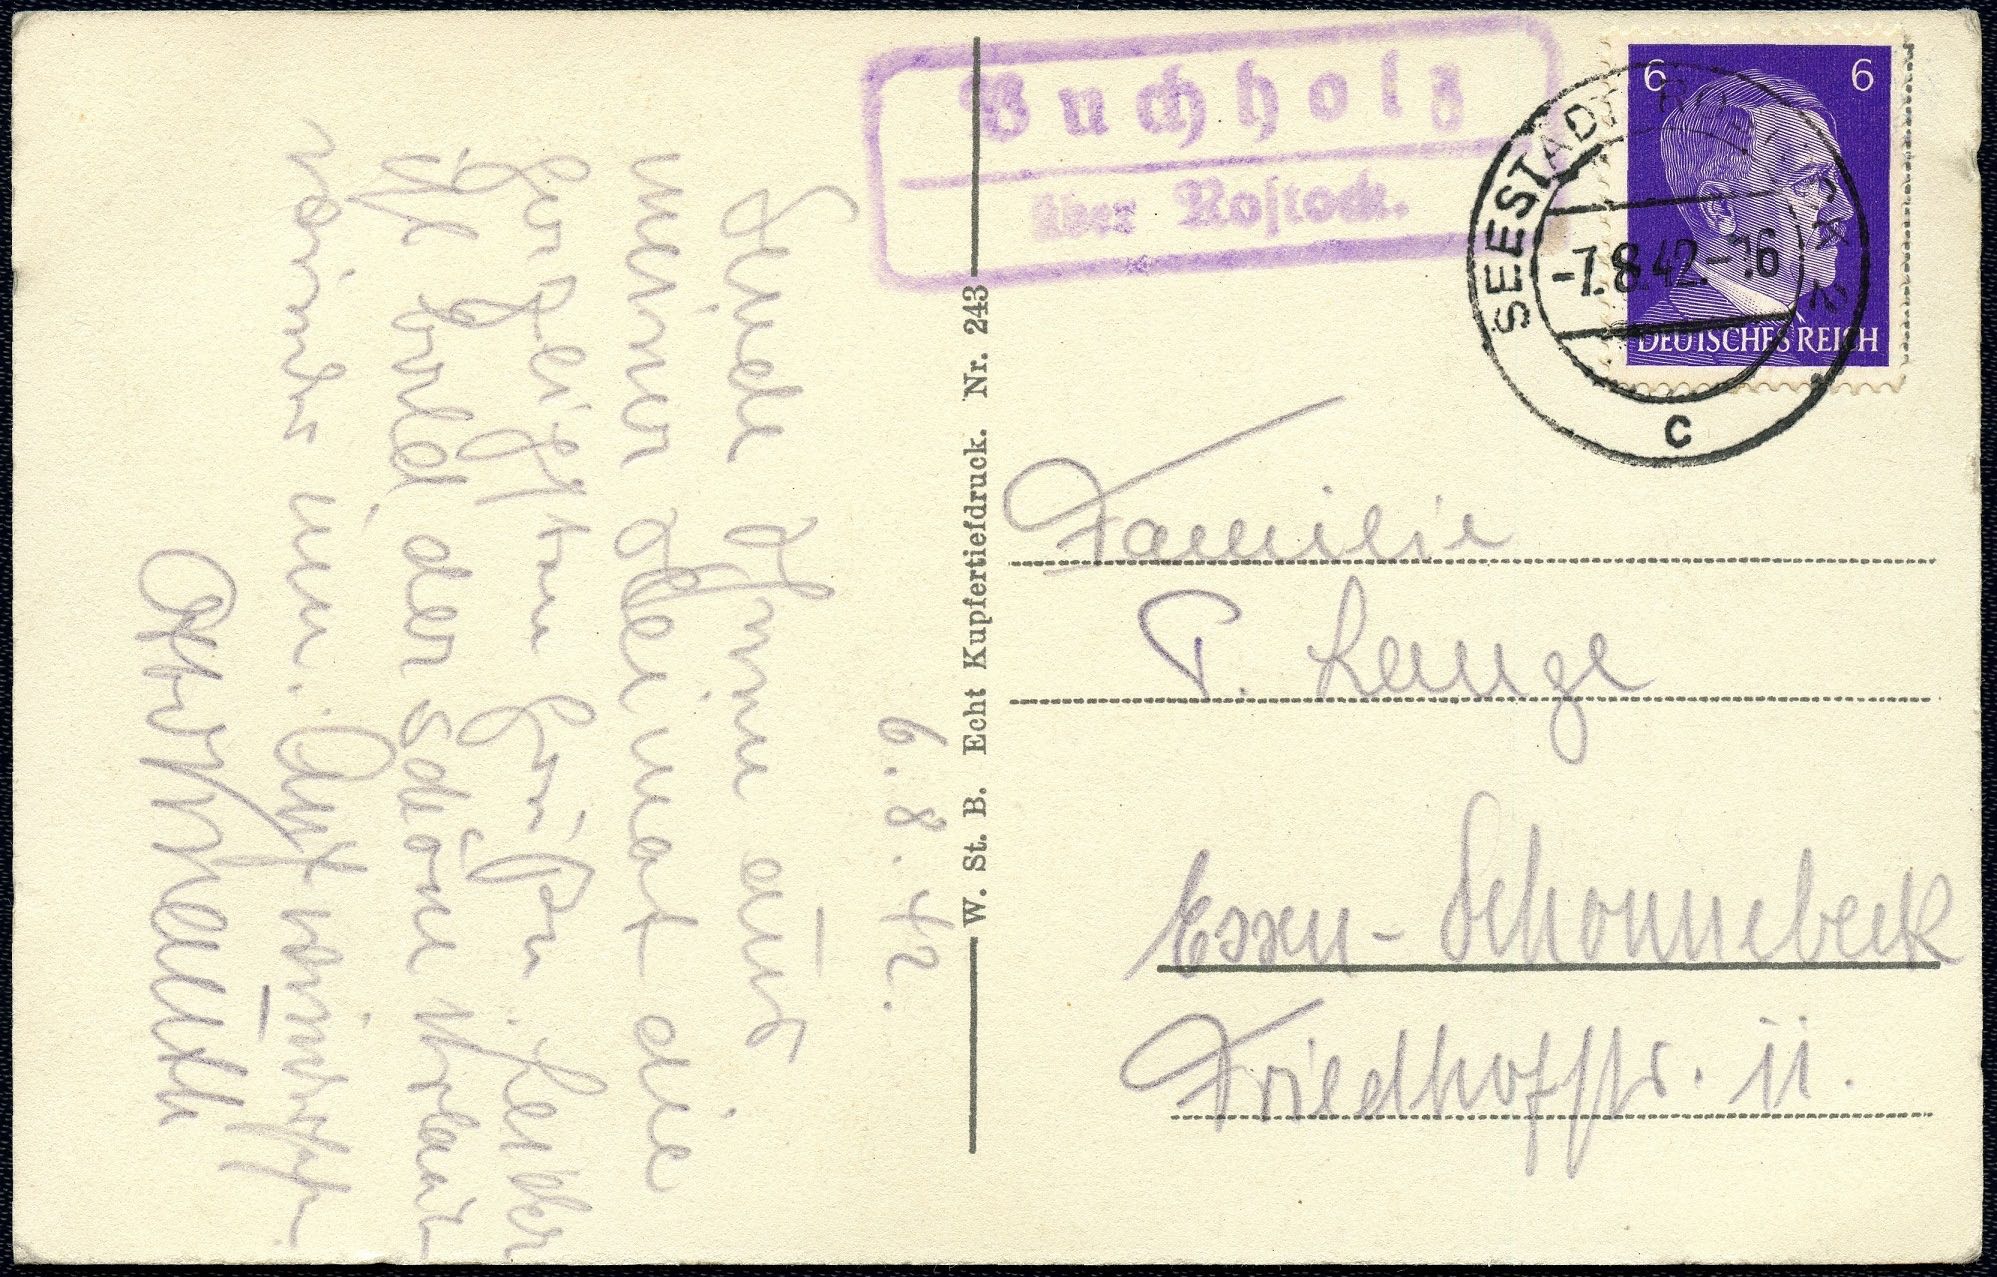 Buchholz
über Rostock.
6
6
SEESTADT ROSTOCK 2
-7.8.42.-16
c
DEUTSCHES REICH
W. St. B. Echt Kupfertiefdruck. Nr. 243
Familie
P. Lange
Essen-Schonnebeck
Friedhofstr. 11.
6.8.42.
Sende Ihnen aus
meiner Heimat die
herzlichsten Grüße. Leider
ist bald der schöne Urlaub
wieder um. Auf